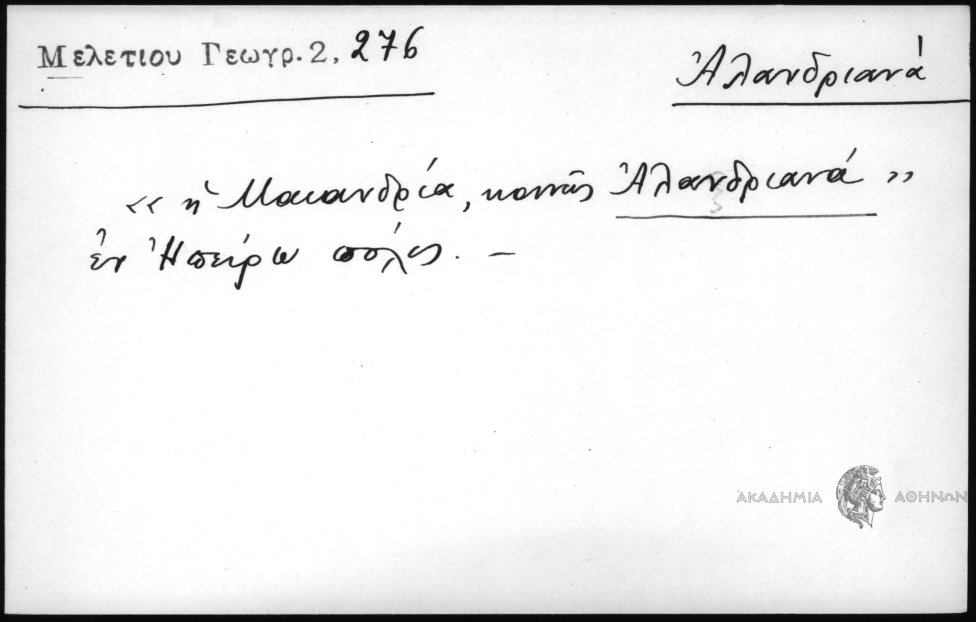 Μελετιου Γεωγρ. 2, 276
Ἀλανδριανά
«ἡ Μαιανδρία, κοινῶς Ἀλανδριανά»
ἐν Ἠπείρῳ πόλις. —
ΑΚΑΔΗΜΙΑ ΑΘΗΝΩΝ